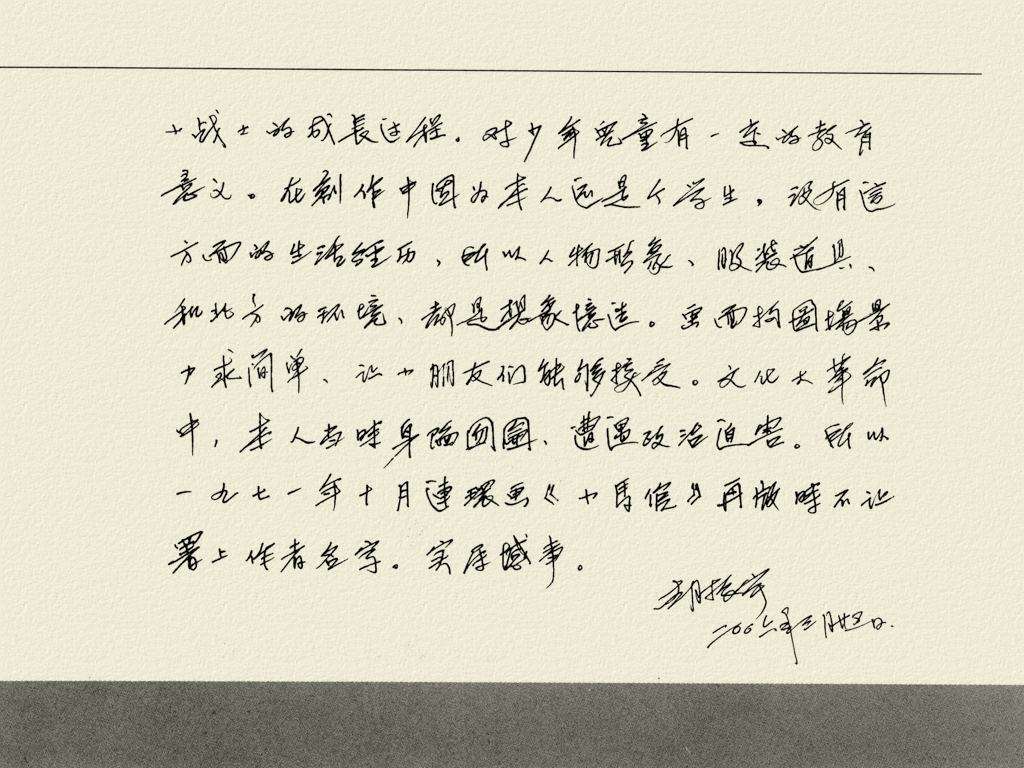 小战士的成長过程．对少年兒童有一定的教育
意义。在創作中因为本人还是个学生，没有這
方面的生活经历，所以人物形象、服装道具、
和北方的环境、都是想象臆造。画面构图場景
力求简单、让小朋友们能够接受。文化大革命
中，本人当時身陷囹圄、遭遇政治迫害。所以
一九七一年十月連環画《小馬倌》再版時不让
署上作者名字。实属憾事。
胡振宇
二00六年三月廿五日．